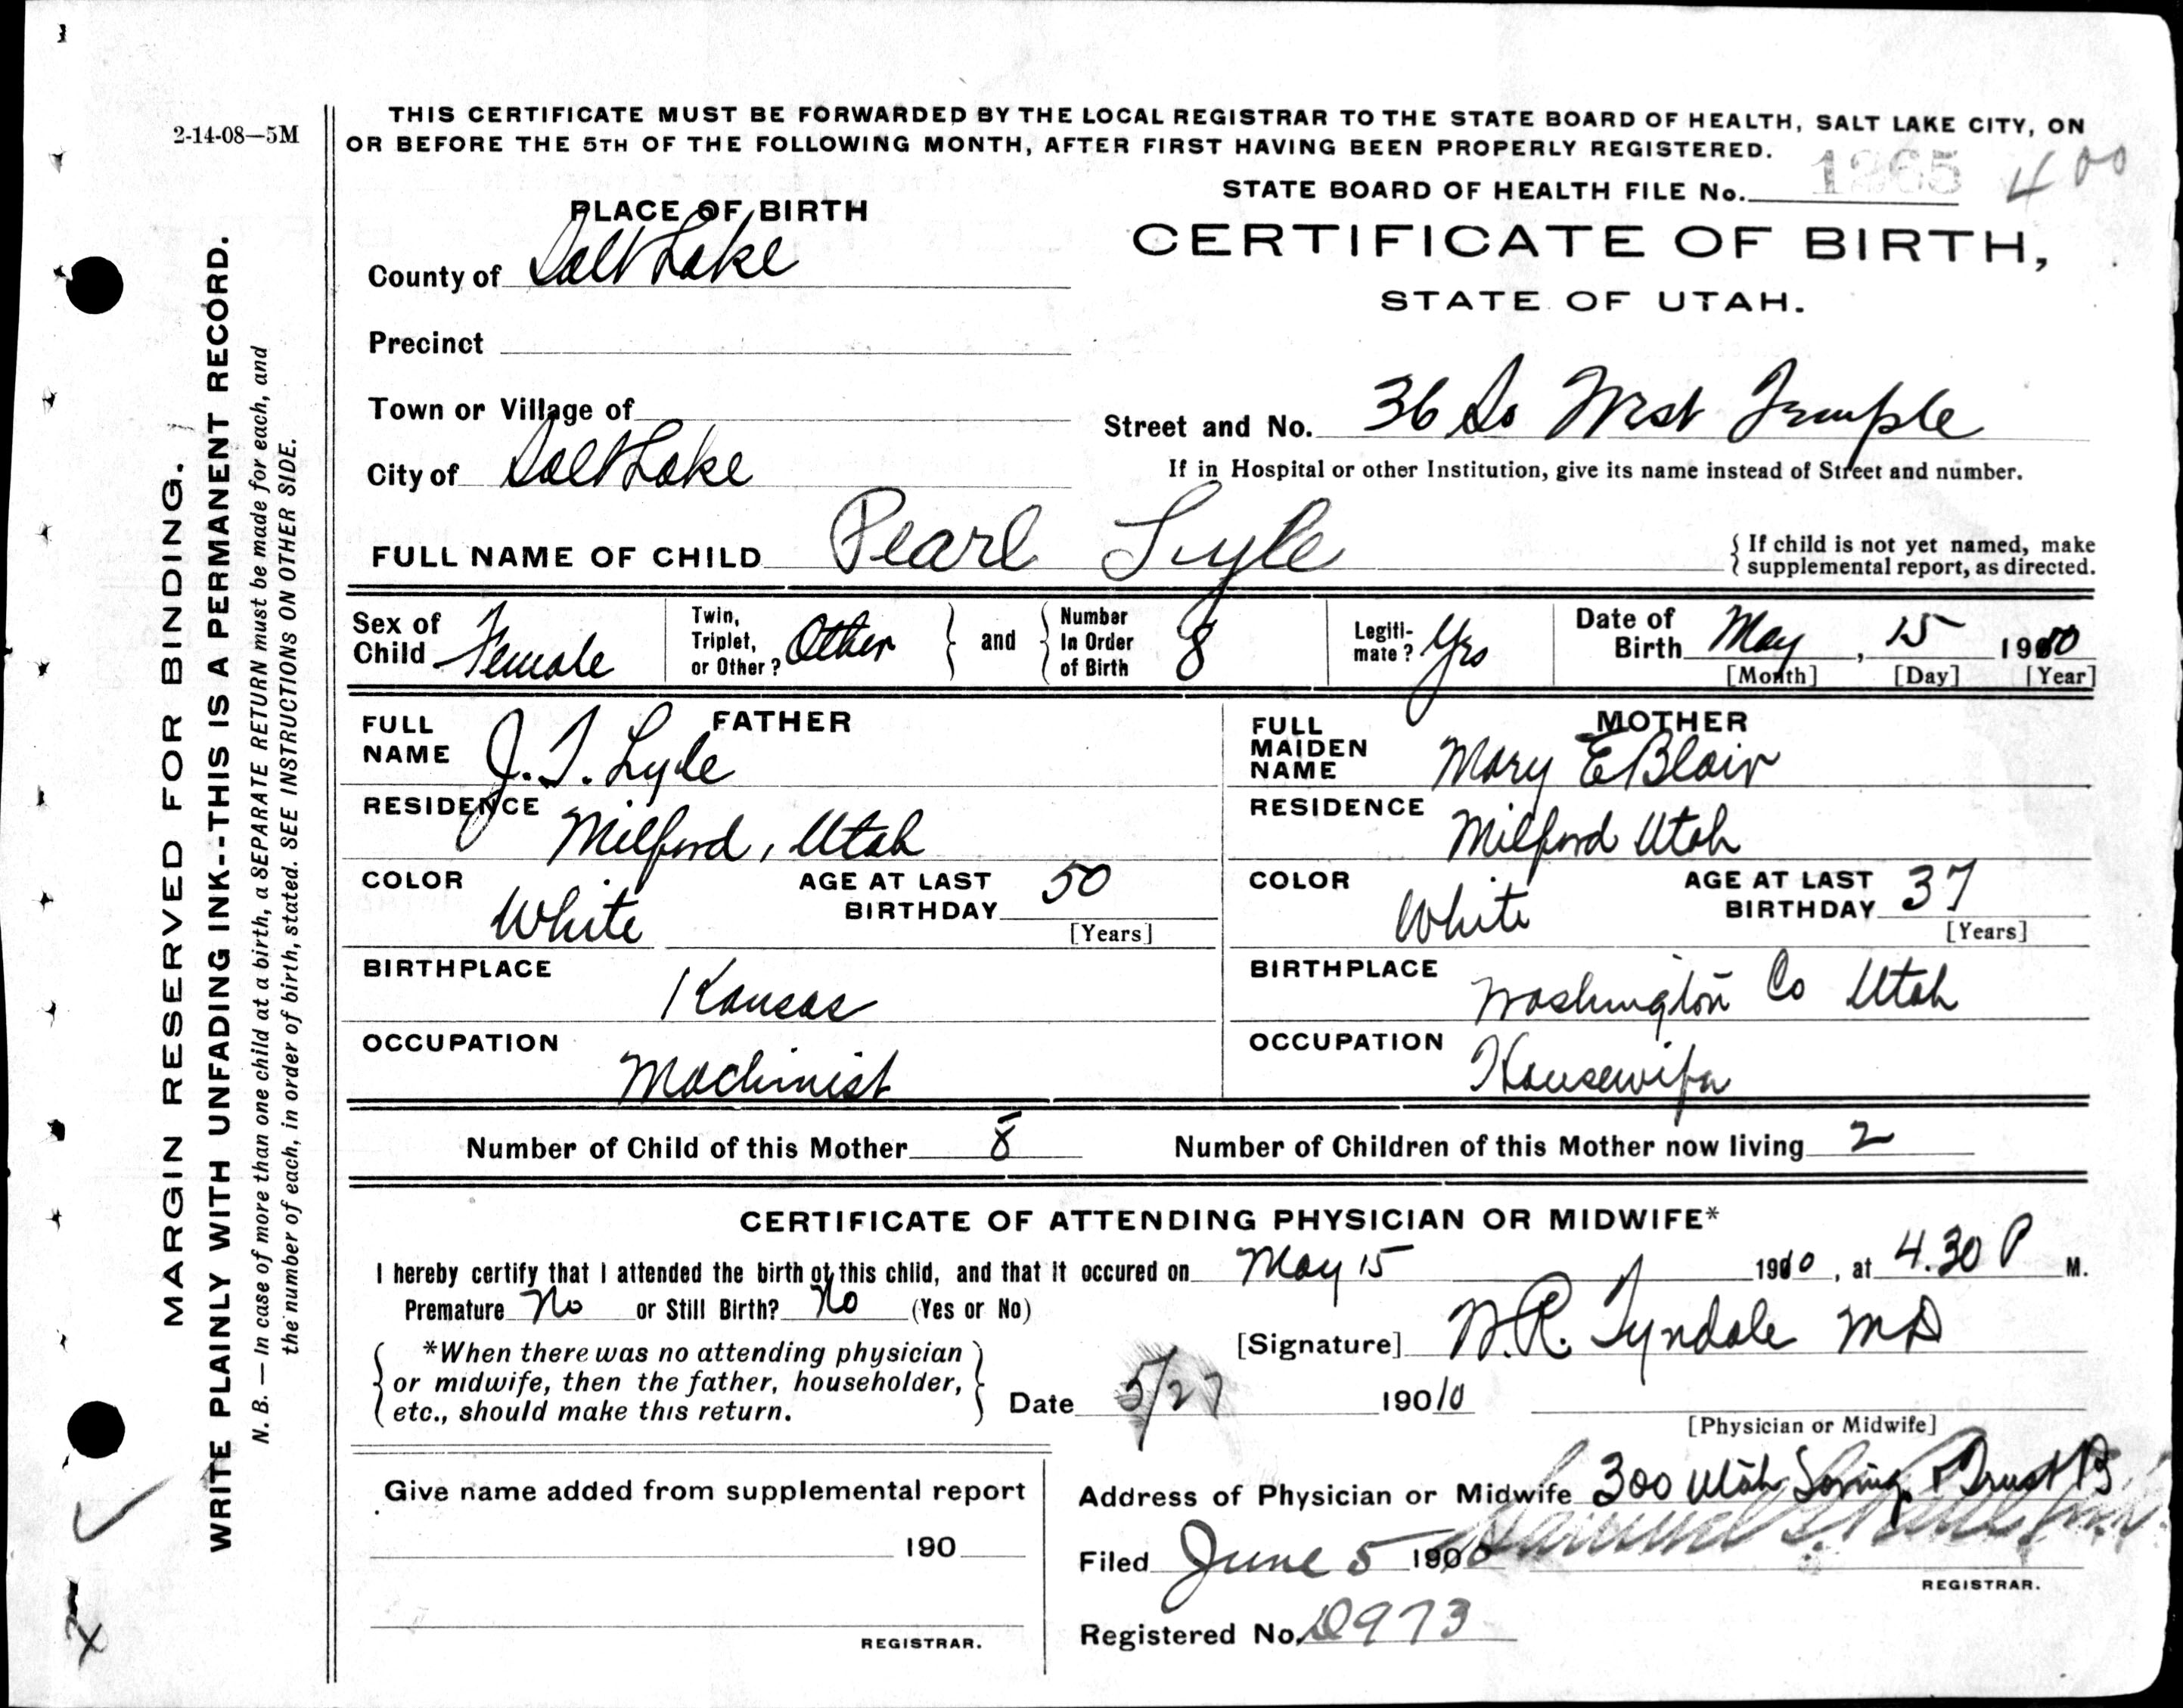 2-14-08—5M
THIS CERTIFICATE MUST BE FORWARDED BY THE LOCAL REGISTRAR TO THE STATE BOARD OF HEALTH, SALT LAKE CITY, ON
OR BEFORE THE 5TH OF THE FOLLOWING MONTH, AFTER FIRST HAVING BEEN PROPERLY REGISTERED.
STATE BOARD OF HEALTH FILE No. 1265 400
CERTIFICATE OF BIRTH,
STATE OF UTAH.
PLACE OF BIRTH
County of Salt Lake
Precinct
Town or Village of
City of Salt Lake
Street and No. 36 So West Temple
If in Hospital or other Institution, give its name instead of Street and number.
FULL NAME OF CHILD Pearl Lyle
{ If child is not yet named, make
supplemental report, as directed.
Sex of Child Female
Twin, Triplet, or Other? Other } and { Number In Order of Birth 8
Legiti-mate? Yes
Date of Birth May, 15 1910
[Month] [Day] [Year]
FATHER
FULL NAME J. T. Lyle
RESIDENCE Milford, Utah
COLOR White AGE AT LAST BIRTHDAY 50
[Years]
BIRTHPLACE Kansas
OCCUPATION Machinist
MOTHER
FULL MAIDEN NAME Mary E Blair
RESIDENCE Milford Utah
COLOR White AGE AT LAST BIRTHDAY 37
[Years]
BIRTHPLACE Washington Co Utah
OCCUPATION Housewife
Number of Child of this Mother 8 Number of Children of this Mother now living 2
CERTIFICATE OF ATTENDING PHYSICIAN OR MIDWIFE*
I hereby certify that I attended the birth of this child, and that it occured on May 15 1910, at 4.30 P M.
Premature No or Still Birth? No (Yes or No)
*When there was no attending physician
or midwife, then the father, householder,
etc., should make this return.
[Signature] N.R. Tyndale MD
Date 5/27 19010
[Physician or Midwife]
Give name added from supplemental report
190
REGISTRAR.
Address of Physician or Midwife 300 Utah Saving & Trust B
Filed June 5 190
REGISTRAR.
Registered No. D973
MARGIN RESERVED FOR BINDING.
WRITE PLAINLY WITH UNFADING INK--THIS IS A PERMANENT RECORD.
N. B. — In case of more than one child at a birth, a SEPARATE RETURN must be made for each, and
the number of each, in order of birth, stated. SEE INSTRUCTIONS ON OTHER SIDE.